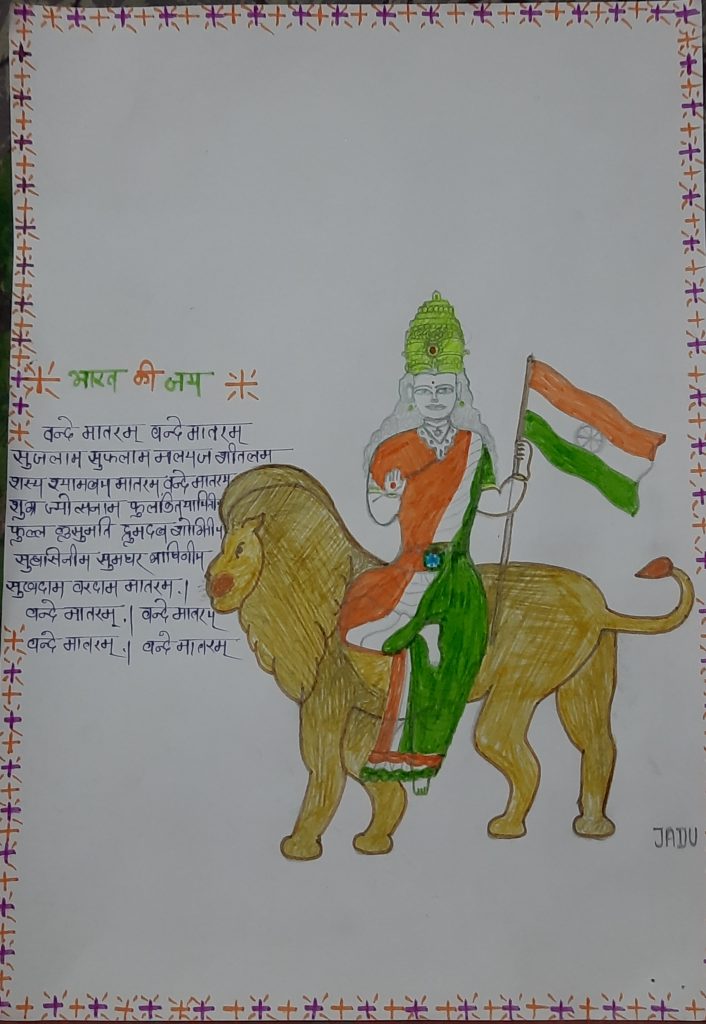 भारत की जय
वन्दे मातरम् वन्दे मातरम्
सुजलाम सुफलाम मलयज शीतलम
शस्य श्यामलाम मातरम् वन्दे मातरम्
शुभ्र ज्योत्सनाम
फुल्ल कुसुमति द्रुमदल
सुहासिनीम सुमधर
सुखदाम वरदाम मातरम् ।
वन्दे मातरम् । वन्दे मातरम्
वन्दे मातरम् । वन्दे मातरम्
JADU